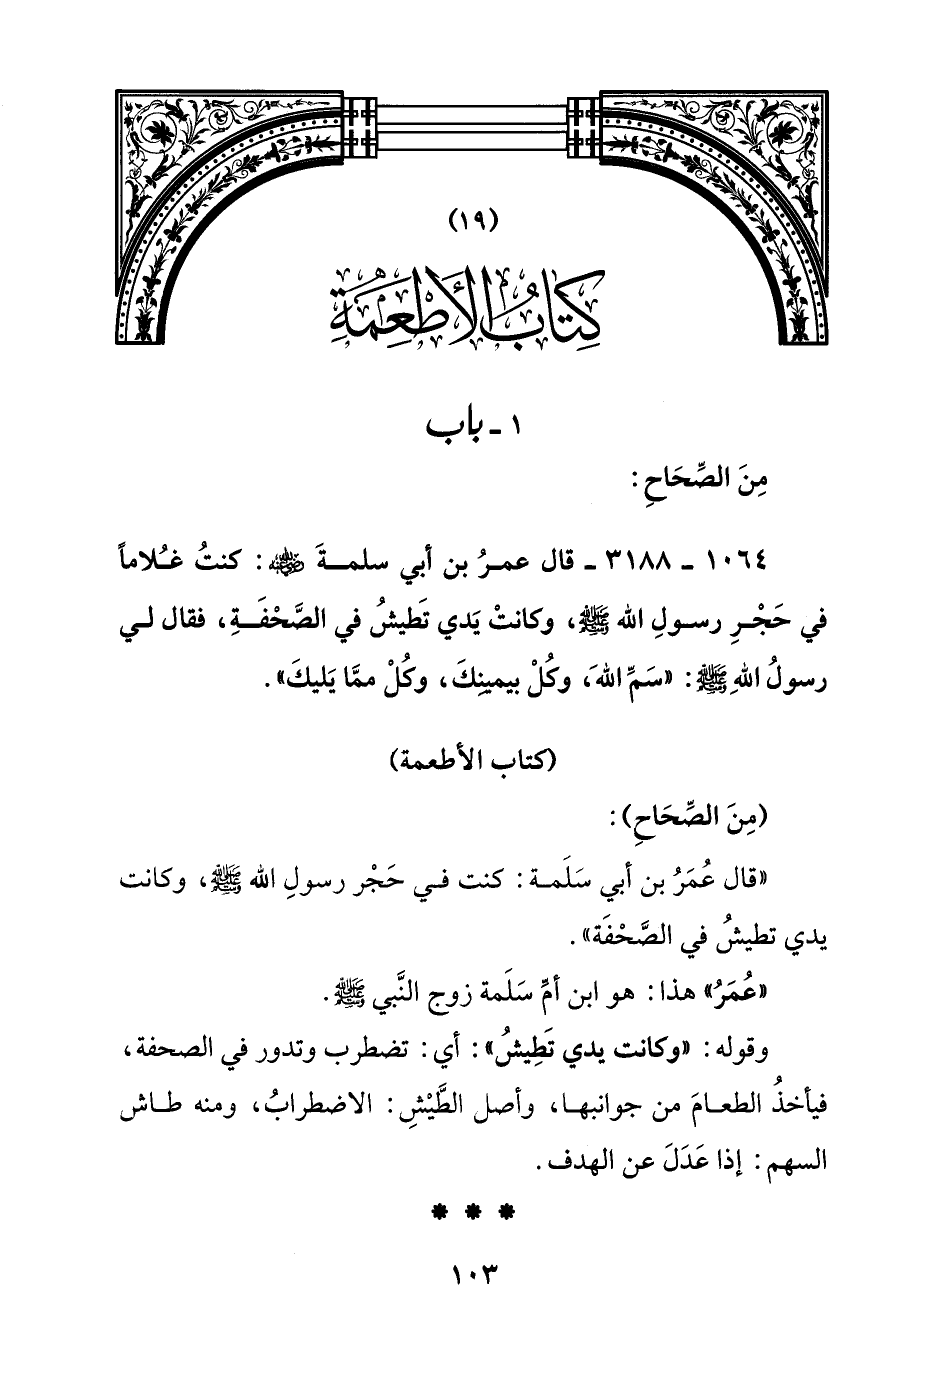 (١٩)
كِتَابُ الأَطْعِمَةِ
١ - باب
مِنَ الصِّحَاحِ:
١٠٦٤ - ٣١٨٨ - قال عمرُ بن أبي سلمةَ ﵁: كنتُ غُلاماً
في حَجْرِ رسولِ الله ﷺ، وكانتْ يَدي تَطيشُ في الصَّحْفَةِ، فقال لي
رسولُ اللهِ ﷺ: «سَمِّ اللهَ، وكُلْ بيمينِكَ، وكُلْ ممَّا يَليكَ».
(كتاب الأطعمة)
(مِنَ الصِّحَاحِ):
«قال عُمَرُ بن أبي سَلَمة: كنت في حَجْر رسولِ الله ﷺ، وكانت
يدي تطيشُ في الصَّحْفَة».
«عُمَرُ» هذا: هو ابن أمِّ سَلَمة زوج النَّبي ﷺ.
وقوله: «وكانت يدي تَطِيشُ»: أي: تضطرب وتدور في الصحفة،
فيأخذُ الطعامَ من جوانبها، وأصل الطَّيْشِ: الاضطرابُ، ومنه طاش
السهم: إذا عَدَلَ عن الهدف.
* * *
١٠٣